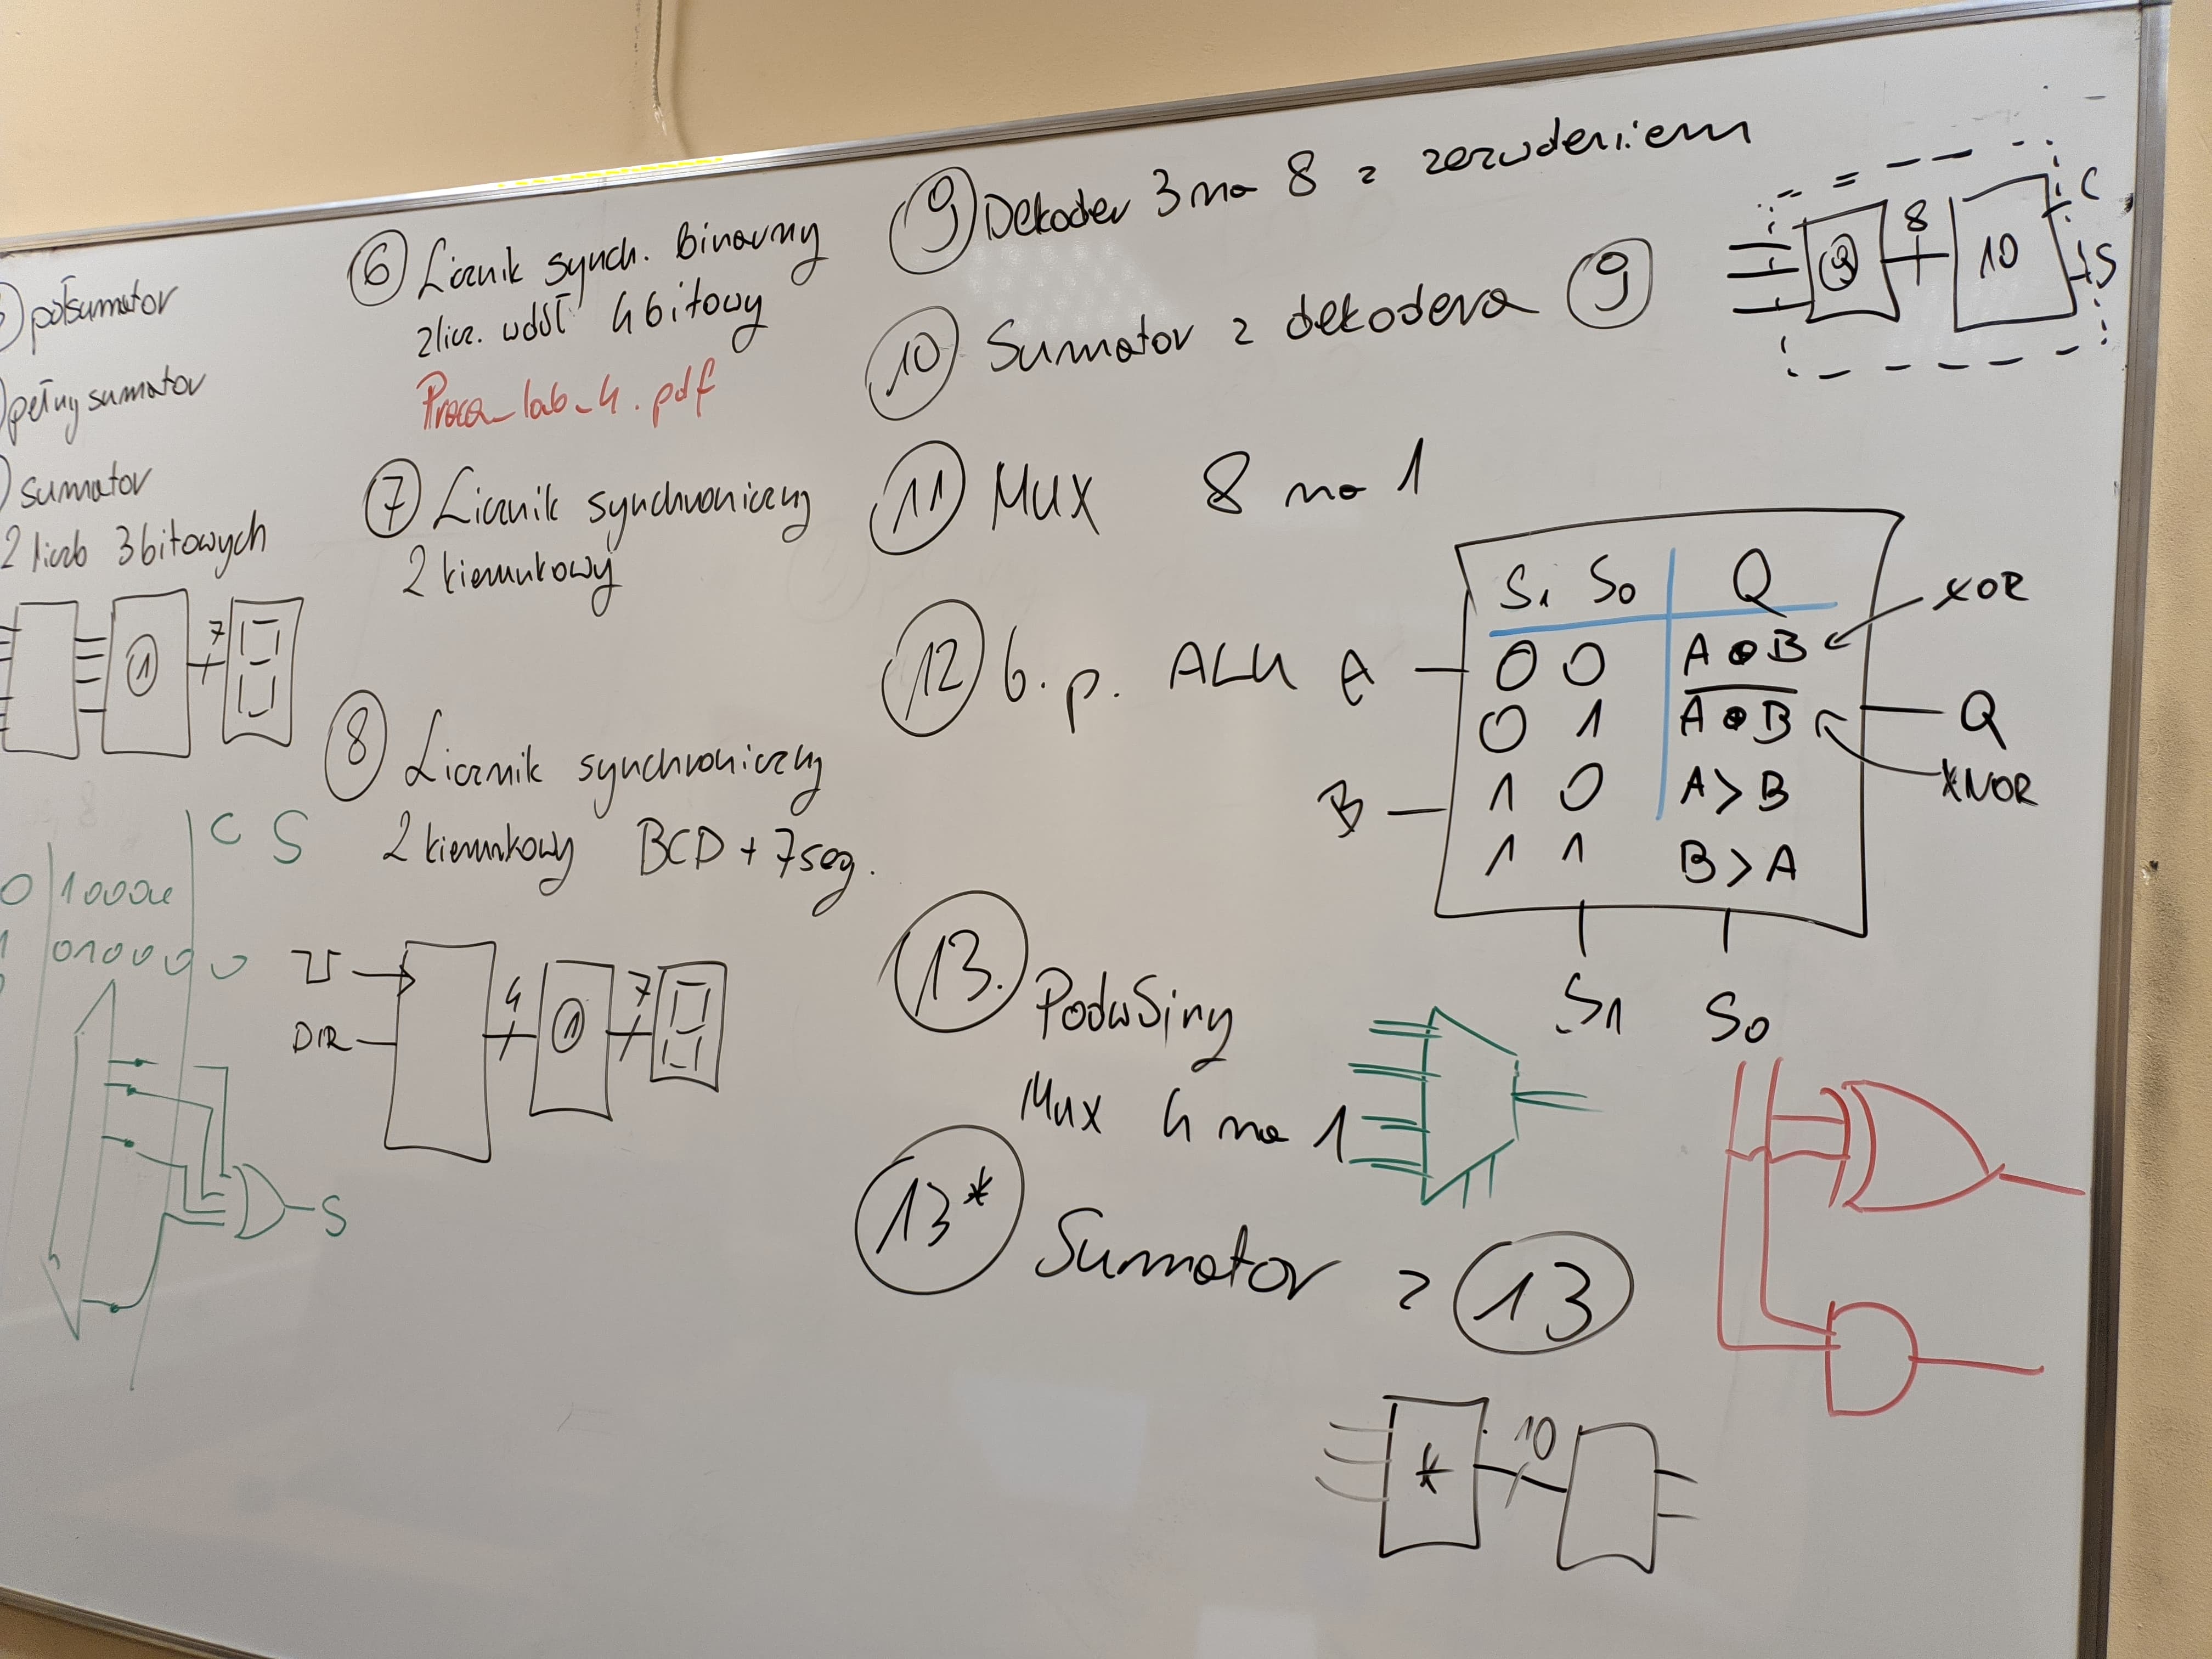 półsumator
pełny sumator
sumator
2 liczb 3bitowych
1
7
C S
0 1000
1 01000
S
6 Licznik synch. binarny
zlicz. w dół 4 bitowy
Praca_lab_4.pdf
7 Licznik synchroniczny
2 kierunkowy
8 Licznik synchroniczny
2 kierunkowy BCD + 7seg.
DIR
4
1
7
9 Dekoder 3 na 8 z zezwoleniem
10 Sumator z dekodera 9
9 8 10 C
S
11 Mux 8 na 1
12 b. p. ALU
A
B
S1 S0 Q
0 0 A ⊕ B
XOR
0 1 A ⊕ B
XNOR
1 0 A > B
1 1 B > A
Q
S1 S0
13. Podwójny
Mux 4 na 1
13* Sumator z 13
* 10